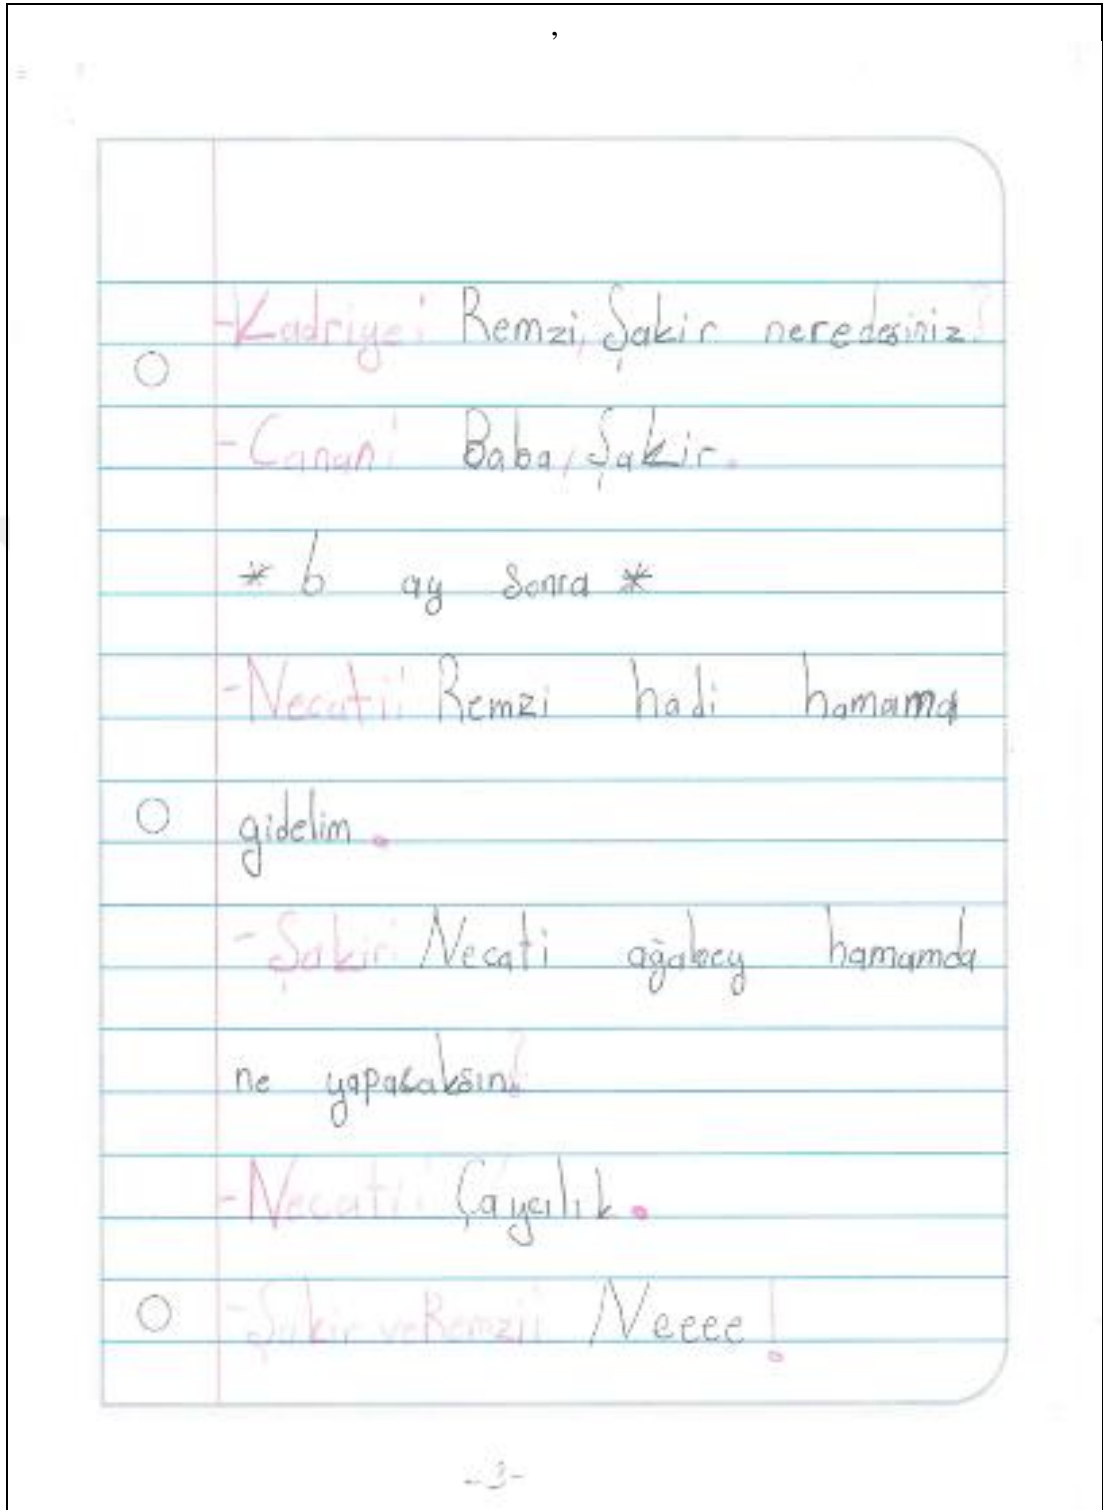 ,
-Kadriye: Remzi, Şakir neredesiniz?
-Canan: Baba, Şakir.
* 6 ay sonra *
-Necati: Remzi hadi hamama
gidelim.
-Şakir: Necati ağabey hamamda
ne yapacaksın?
-Necati: Çaycılık.
-Şakir ve Remzi: Neeee!